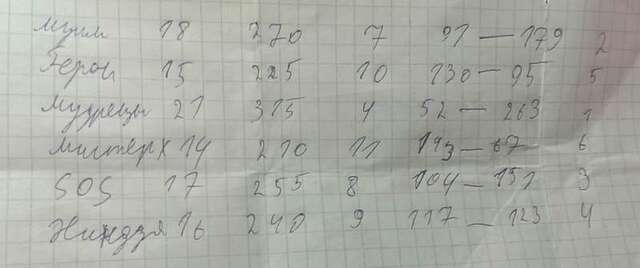 мумм 18 270 7 91 — 179 2
Герои 15 225 10 130 — 95 5
Мудрецы 21 315 4 52 — 263 1
Мистер X 14 210 11 143 — 67 6
SOS 17 255 8 104 — 151 3
Ниндзя 16 240 9 117 — 123 4